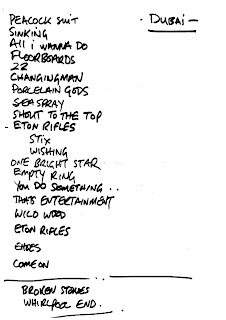 PEACOCK SUIT
- DUBAI -
SINKING
All i WANNA DO
FLOORBOARDS
22
CHANGINGMAN
PORCELAIN GODS
SEA SPRAY
SHOUT TO THE TOP
- ETON RIFLES
STIX
WISHING
ONE BRIGHT STAR
EMPTY RING
YOU DO SOMETHING ..
THATS ENTERTAINMENT
WILD WOOD
ETON RIFLES
COME ON
BROKEN STONES
WHIRLPOOL END.